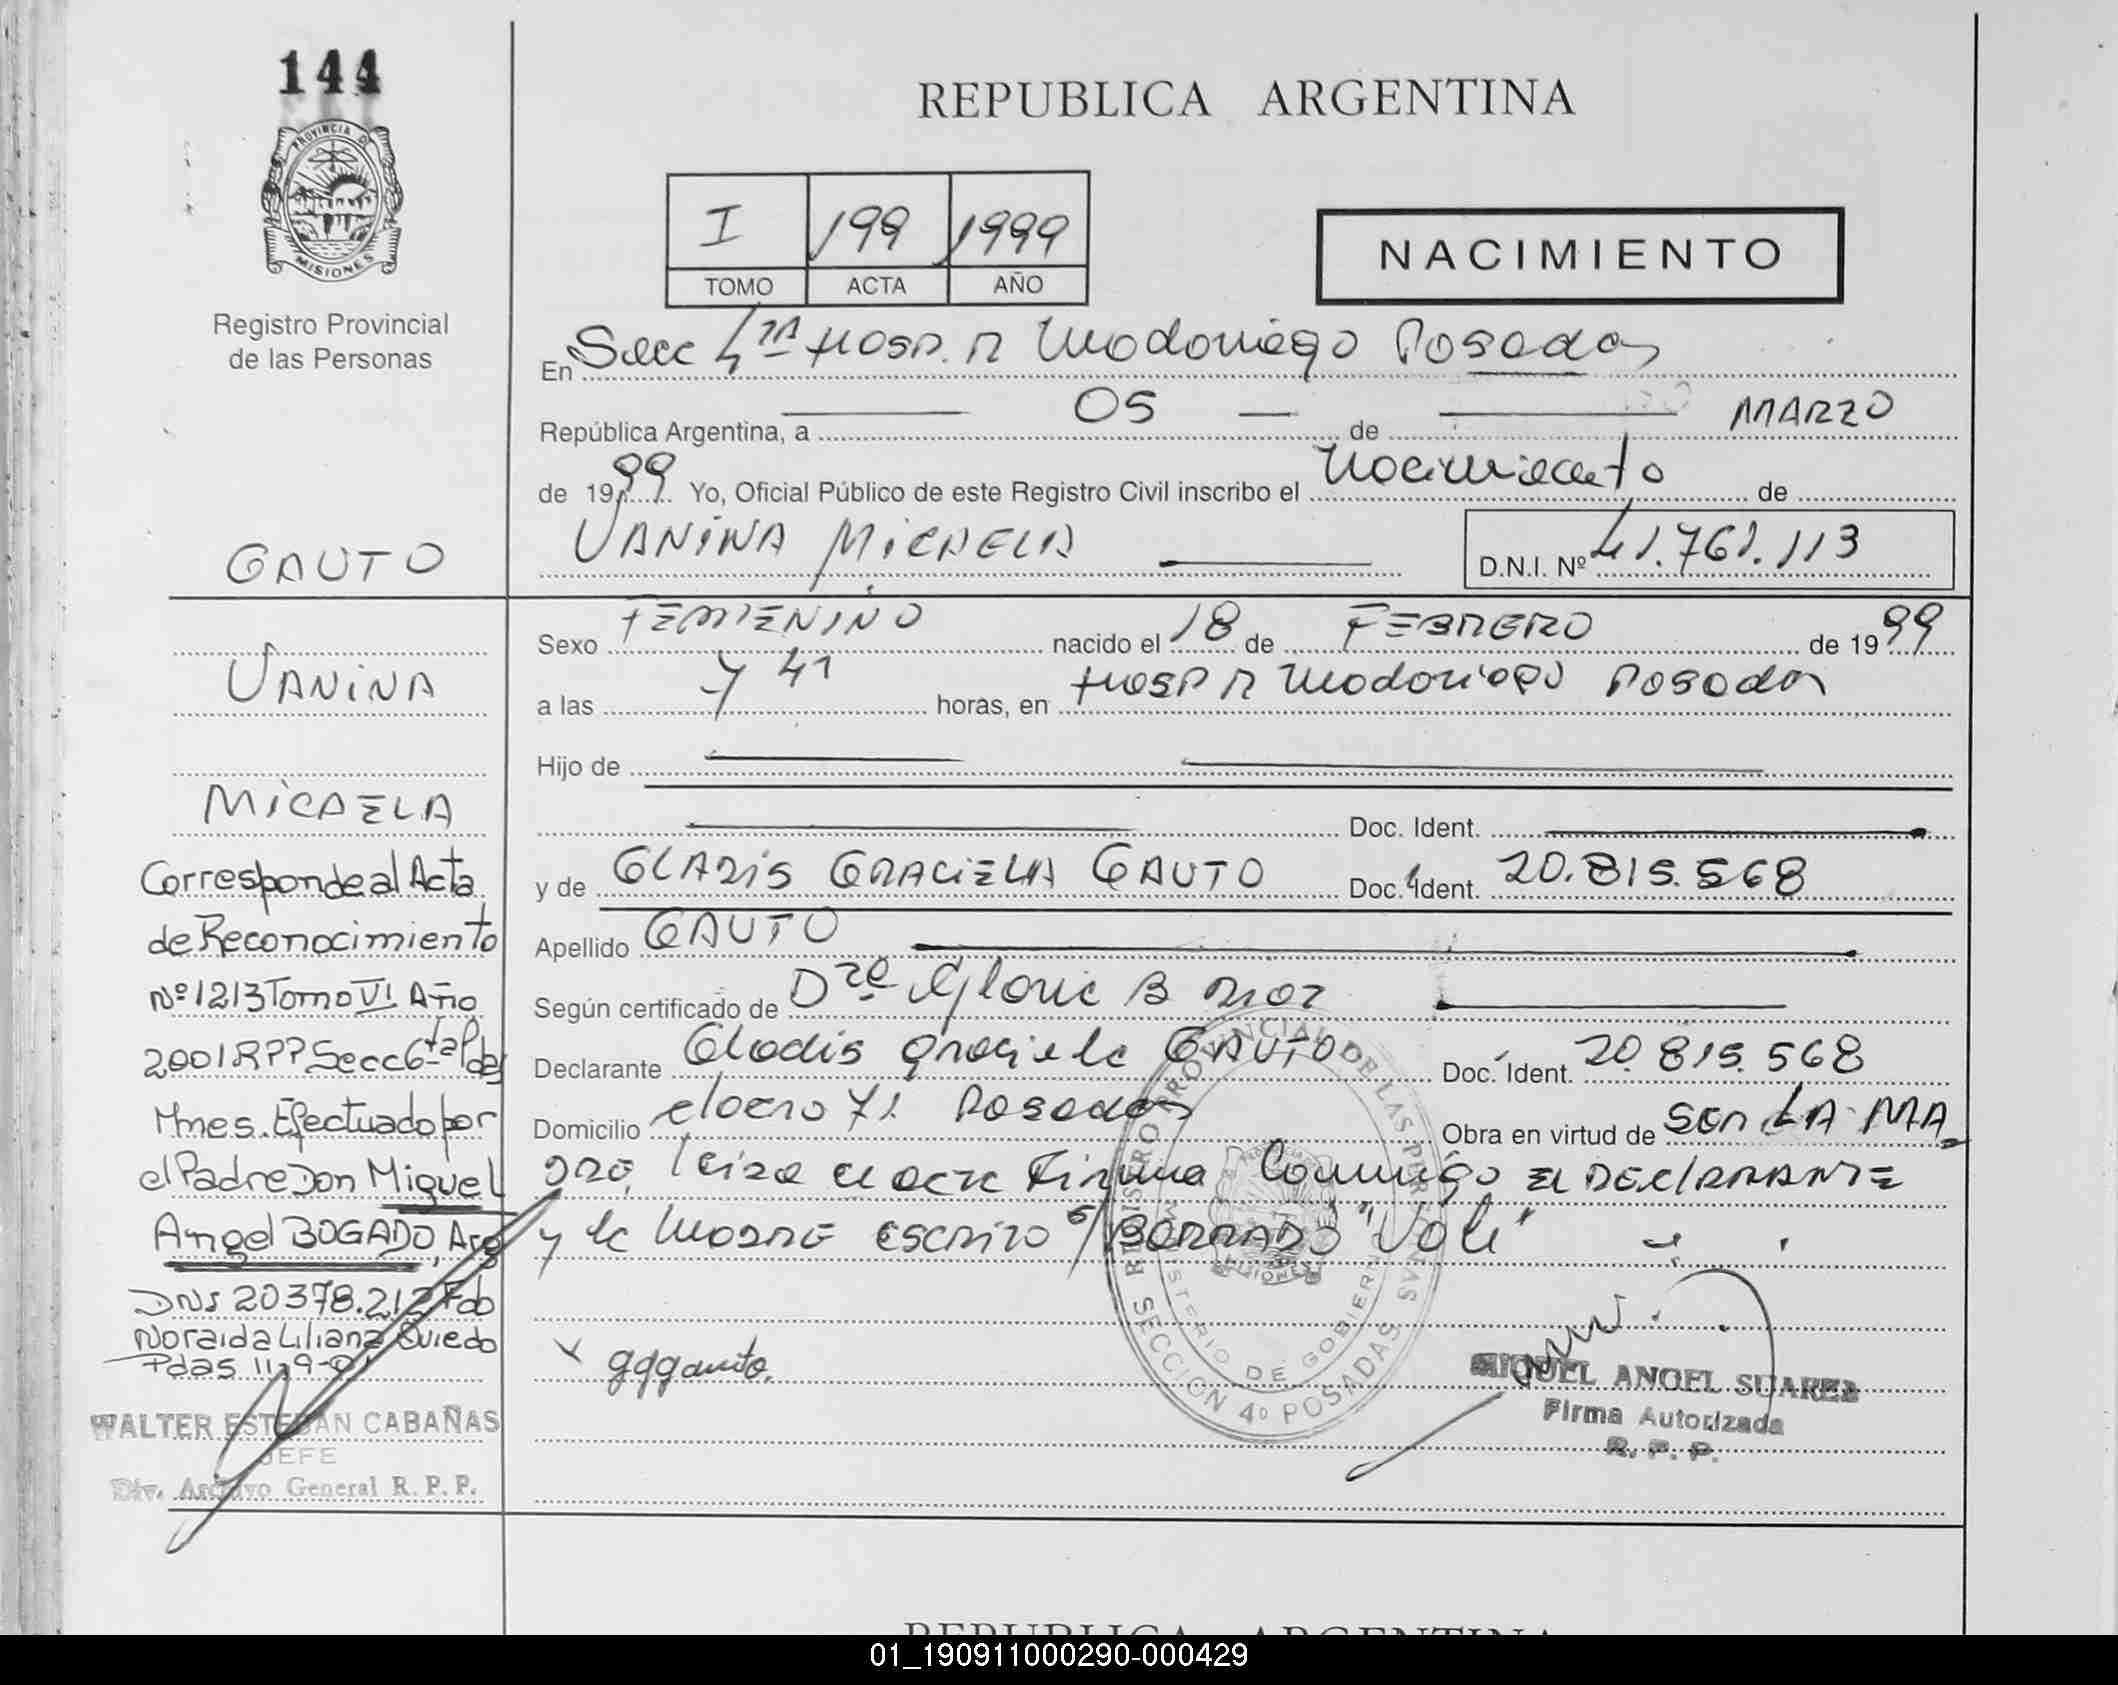 144
PROVINCIA D
MISIONES
Registro Provincial
de las Personas
REPUBLICA ARGENTINA
I 199 1999
TOMO ACTA AÑO
NACIMIENTO
En Secc 4ta Hosp. R Madariaga Posadas
República Argentina, a 05 de MARZO
de 1999 Yo, Oficial Público de este Registro Civil inscribo el Nacimiento de
VANINA MICAELA
D.N.I. Nº 41.761.113
Sexo FEMENINO nacido el 18 de FEBRERO de 1999
a las 7 41 horas, en Hosp R Madariaga Posadas
Hijo de
Doc. Ident.
y de GLADIS GRACIELA GAUTO Doc. Ident. 20.815.568
Apellido GAUTO
Según certificado de Dra Gloria B
Declarante Gladis Graciela GAUTO Doc. Ident. 20.815.568
Domicilio 71 Posadas Obra en virtud de SER LA MA
DRE, leida el acta Firma Conmigo El DEClARANTE
y la MADRE ESCRITO s/BORRADO "Vale"
gggauto.
REGISTRO PROVINCIAL DE LAS PERSONAS
MINISTERIO DE GOBIERNO
MISIONES
SECCION 4º POSADAS
MIGUEL ANGEL SUAREZ
Firma Autorizada
R. P. P.
GAUTO
VANINA
MICAELA
Corresponde al Acta
de Reconocimiento
Nº 1213 Tomo VI Año
2001 RPP Secc 6ta Pdas
Mnes. Efectuado por
el Padre Don Miguel
Angel BOGADO, Arg
DNI 20378.212 Fdo
Noraida Liliana Oviedo
Pdas 11-9-01
WALTER ESTEBAN CABAÑAS
JEFE
Div. Archivo General R. P. P.
REPUBLICA ARGENTINA
01_190911000290-000429